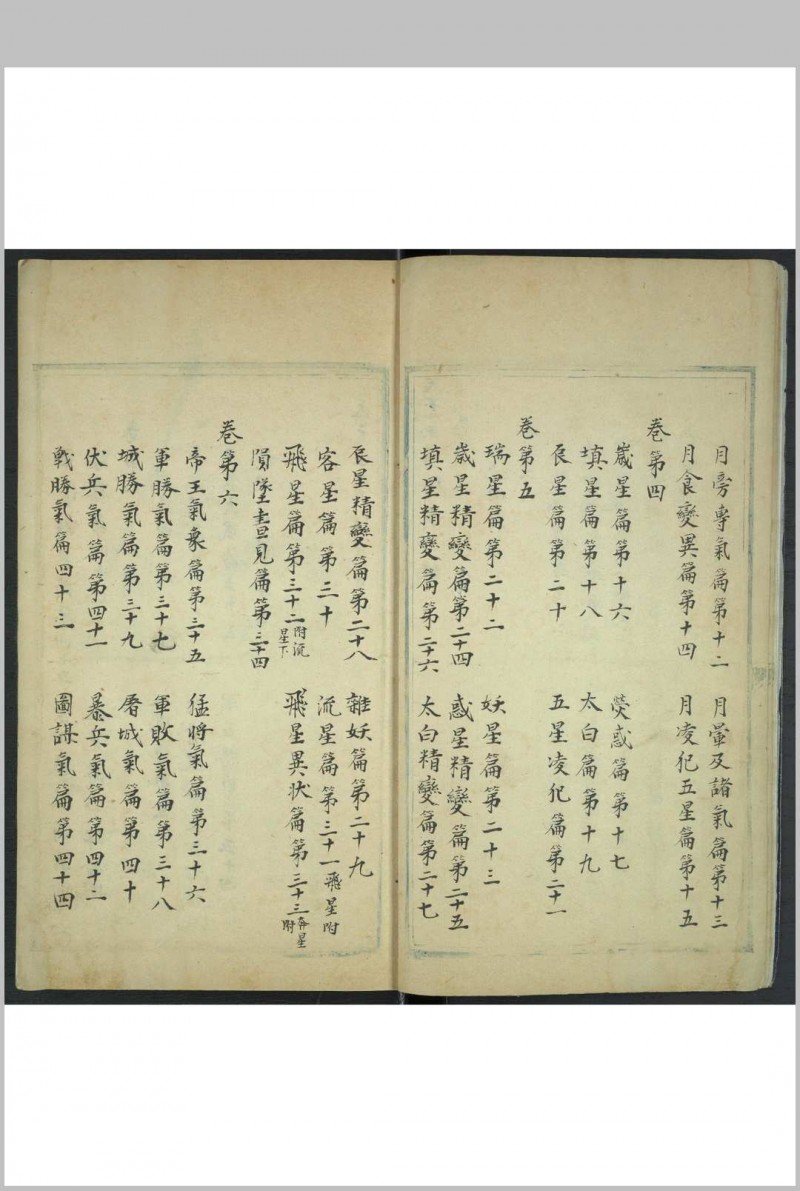 月旁專氣篇第十二　月暈及諸氣篇第十三
月食變異篇第十四　月凌犯五星篇第十五
卷第四
歲星篇第十六　熒惑篇第十七
填星篇第十八　太白篇第十九
辰星篇第二十　五星凌犯篇第二十一
卷第五
瑞星篇第二十二　妖星篇第二十三
歲星精變篇第二十四　惑星精變篇第二十五
填星精變篇第二十六　太白精變篇第二十七
辰星精變篇第二十八　雜妖篇第二十九
客星篇第三十　流星篇第三十一飛星附
飛星篇第三十二附流星下　飛星異狀篇第三十三奔星附
隕墜晝見篇第三十四
卷第六
帝王氣象篇第三十五　猛將氣篇第三十六
軍勝氣篇第三十七　軍敗氣篇第三十八
城勝氣篇第三十九　屠城氣篇第四十
伏兵氣篇第四十一　暴兵氣篇第四十二
戰勝氣篇四十三　圖謀氣篇第四十四